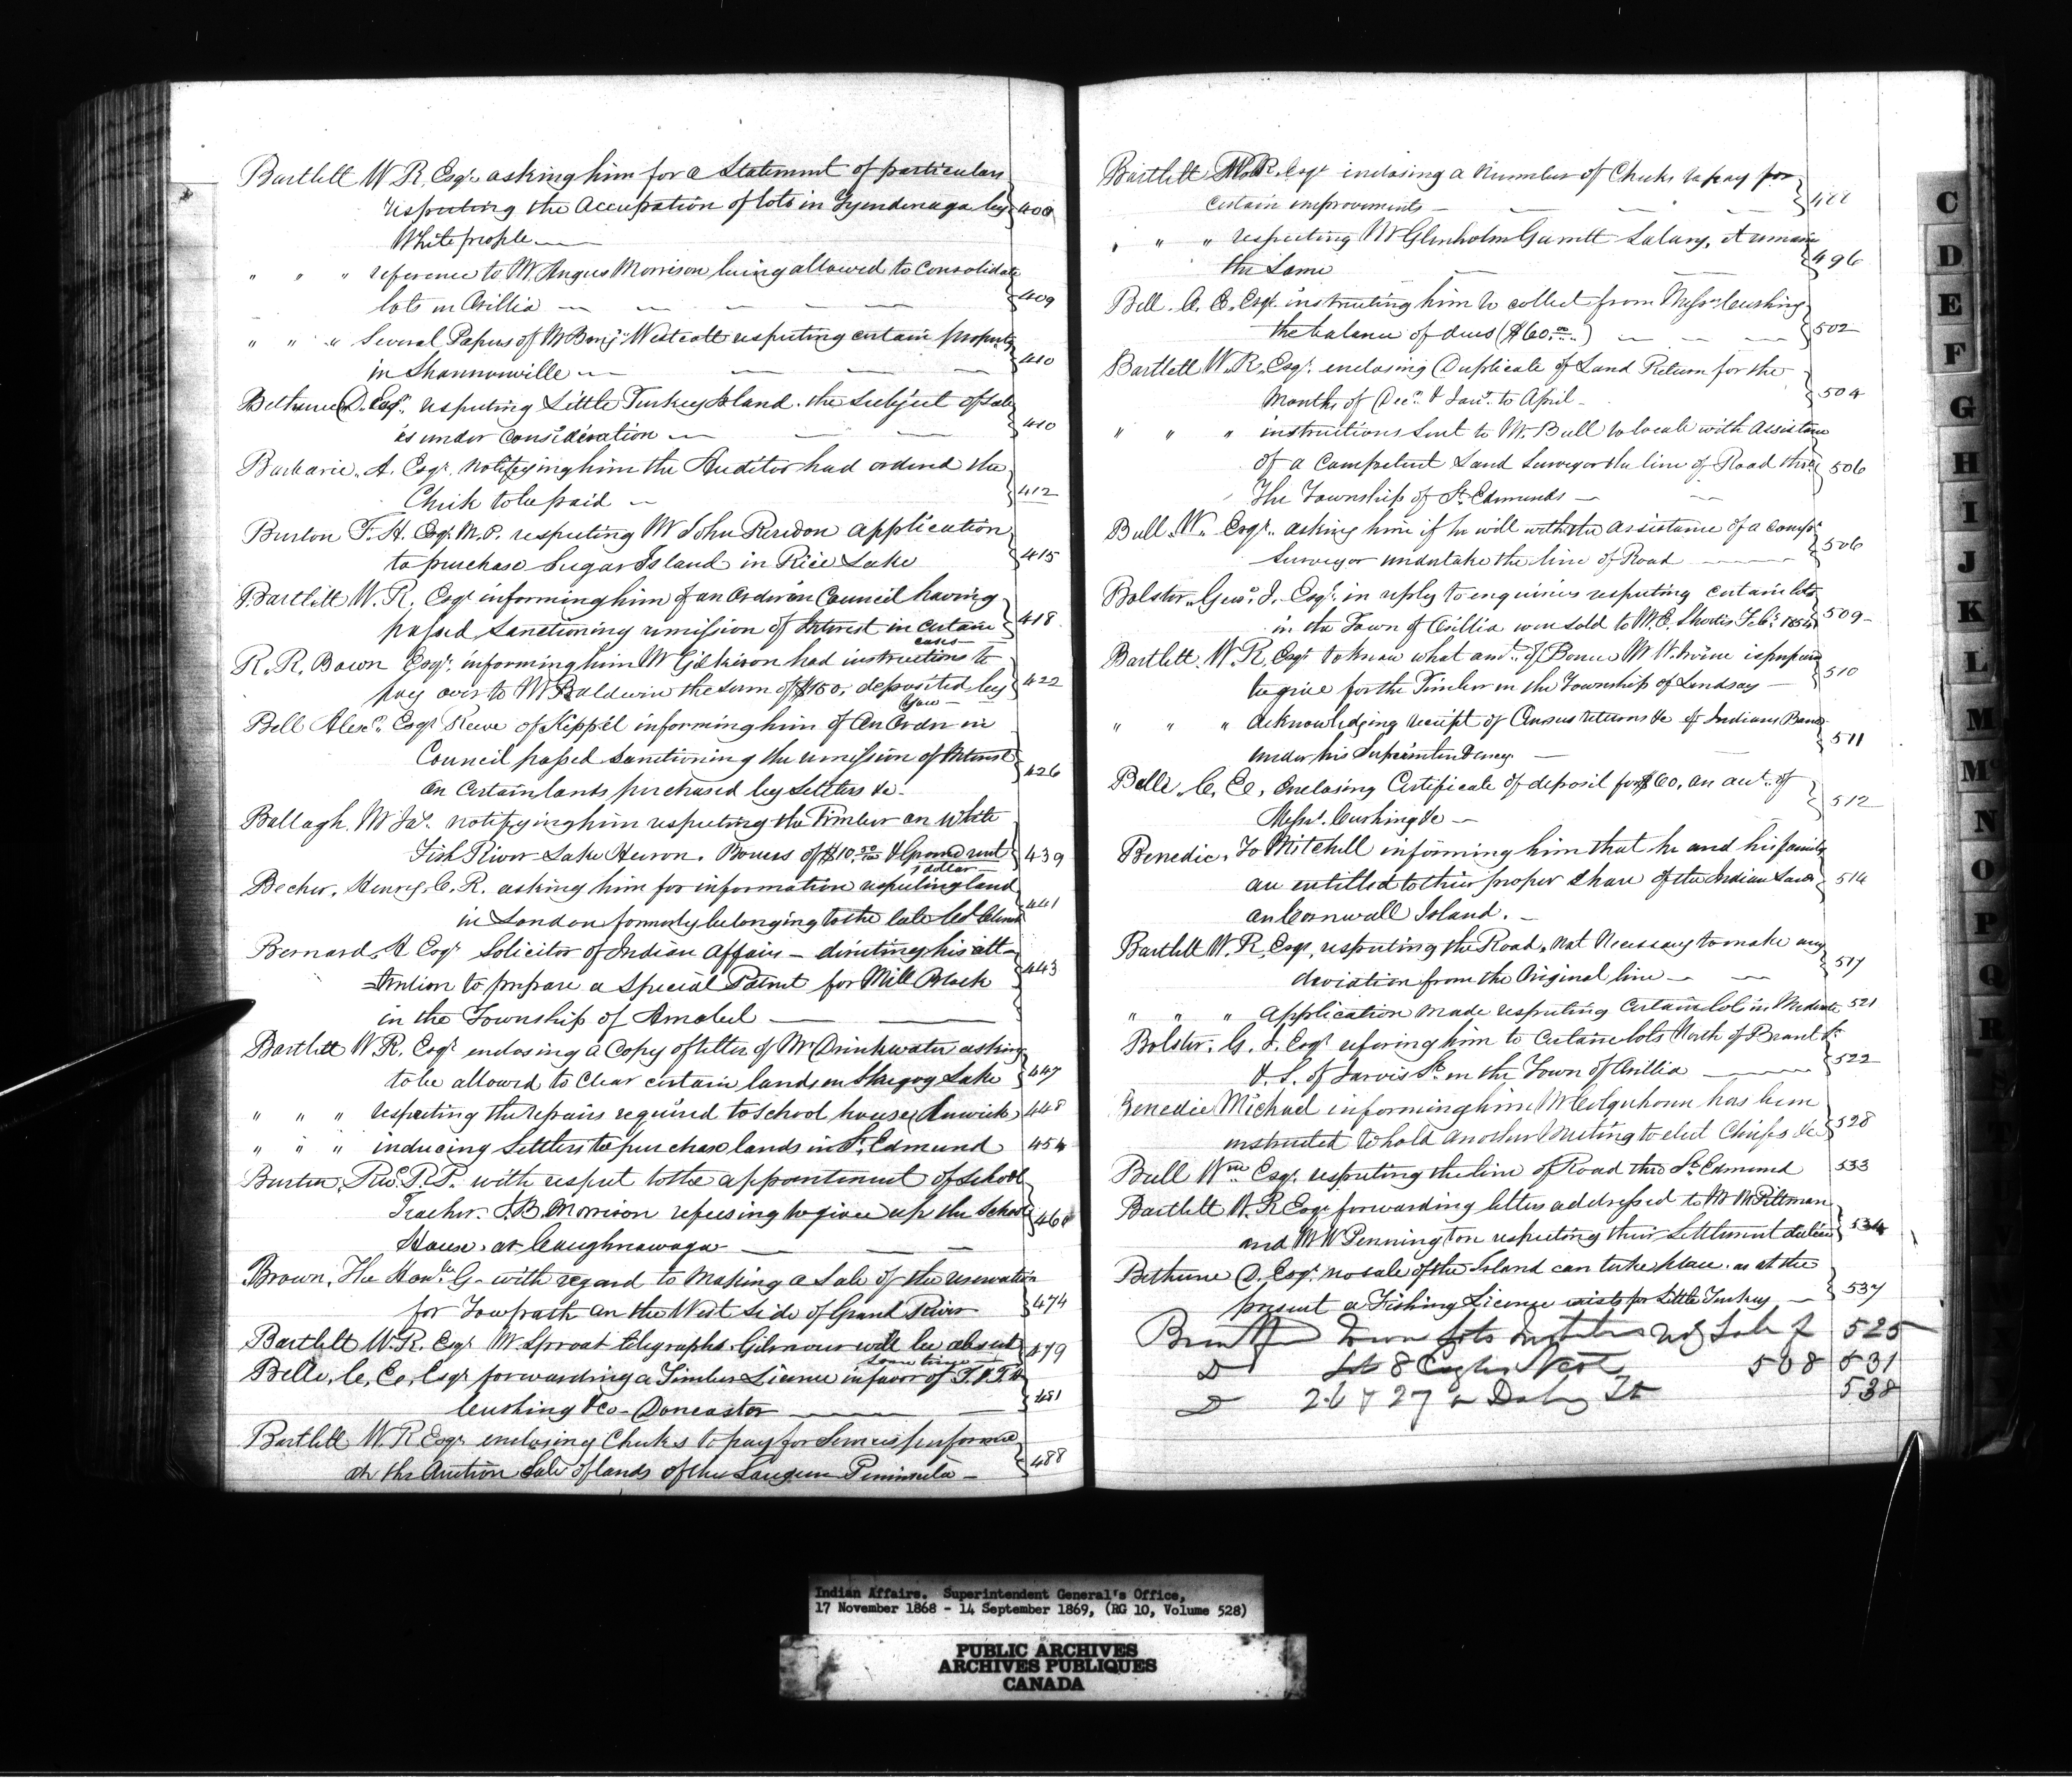 Bartlett W R, Esqr asking him for a Statement of particulars
respecting the Occupation of lots in Tyendenaga by 400
White people
" " " reference to Mr Angus Morrison being allowed to Consolidate
lots in Orillia 409
" " " Several Papers of Mr Benjn Westcott respecting certain property
in Shannonville 410
Bethune D. Esqr, respecting Little Turkey Island. the subject of sale
is under Consideration 410
Barbarie A. Esqr, notifying him the Auditor had ordered the
Check to be paid 412
Burton F. H. Esqr M.P. respecting Mr John Reridon application
to purchase Sugar Island in Rice Lake 415
Bartlett W. R. Esqr informing him of an Order in Council having
passed, Sanctioning remission of Interest in certain 418
cases
R. R. Bown Esqr informing him Mr Gilkison had instructions to
pay over to Mr Baldwin the sum of $150, deposited by 422
Bell Alexr, Esqr Reeve of Keppel informing him of an Ordr in
Council passed Sanctioning the remission of Interest 426
on certain lands purchased by Settlers &c.
Ballagh, Mr Jas. notifying him respecting the Timber on White
Fish River Lake Huron. Bonus of $10.50 & Ground rent 439
1 dollar
Becher, Henry, C. R. asking him for information respecting land
in London formerly belonging to the late Col 441
Bernard, A Esqr Solicitor of Indian Affairs - directing his att-
-ention to prepare a Special Patent for Mill Block 443
in the Township of Amabel
Bartlett W R. Esqr enclosing a Copy of letter of Mr Drinkwater asking
to be allowed to Clear certain lands on Skugog Lake 447
" " " respecting the repairs required to School house, Alnwick 448
" " " inducing Settlers to purchase lands in St. Edmund 454
Burtin, Revd. P. with respect to the appointment of School
Teacher. J. B. Morrison refusing to give up the School 460
House, at Caughnawaga
Brown, The Honble G. with regard to Making a Sale of the reservation
for Towpath on the West Side of Grand River 474
Bartlett W. R. Esqr Mr Sproat telegraphs Gilmour will be absent 479
some time
Belle, C. E, Esqr forwarding a Timber License in favor of
Cushing & Co - Doncaster 481
Bartlett W. R Esqr enclosing Checks to pay for Services performed
at the Auction Sale of lands of the Saugeen Peninsula 488
Bartlett W. R. Esqr enclosing a Number of Checks to pay for
certain improvements 488
" " " respecting Mr Glenholm Garrett Salary, it remains
the Same 496
Bell. C. E. Esqr. instructing him to collect from Messrs Cushing
the balance of dues ($60.00) 502
Bartlett W. R. Esqr. enclosing Duplicate of Land Return for the
Months of Decr. & Janr. to April 504
" " " instructions sent to Mr Bull to locate with Assistance
of a Competent Land Surveyor the line of Road thro' 506
The Township of St. Edmunds
Bull Wm Esqr. asking him if he will with the assistance of a compt
Surveyor undertake the line of Road 506
Bolster Geo. J. Esqr. in reply to enquiries respecting certain lots
in the Town of Orillia were sold to Mr E. Shortis Feby 1854 509
Bartlett. W. R. Esqr to know what amt. of Bonus Mr W. Irvine is prepared
to give for the Timber in the Township of Lindsay 510
" " " Acknowledging receipt of Census returns &c of Indians Bands
under his Superintendency 511
Belle, C. E, Enclosing Certificate of deposit for $60, on act. of
Messrs. Cushing &c 512
Benedic, To Mitchell informing him that he and his family
are entitled to their proper Share of the Indian Land 514
on Cornwall Island.
Bartlett W. R, Esqr, respecting the Road, Not Necessary to make any
deviation from the Original line 517
" " " Application Made respecting Certain lot in Medonte 521
Bolster. G. J. Esqr refering him to Certain lots North of Brant St
& S. of Jarvis St in the Town of Orillia 522
Benedic Michael informing him Mr Colquhoun has been
instructed to hold another Meeting to elect Chiefs &c 528
Bull Wm Esqr. respecting the line of Road thro St. Edmund 533
Bartlett W. R Esqr forwarding letters addressed to Mr M Pittman
and Mr W Pennington respecting their Settlement duties 534
Bethune D. Esqr. no sale of the Island can take place. as at the
present a Fishing License exists for Little Turkey 537
Town lots 525
Lot 8 508 531
26 & 27 538
C
D
E
F
G
H
I
J
K
L
M
Mc
N
O
P
Q
R
Indian Affairs. Superintendent General's Office,
17 November 1868 - 14 September 1869, (RG 10, Volume 528)
PUBLIC ARCHIVES
ARCHIVES PUBLIQUES
CANADA